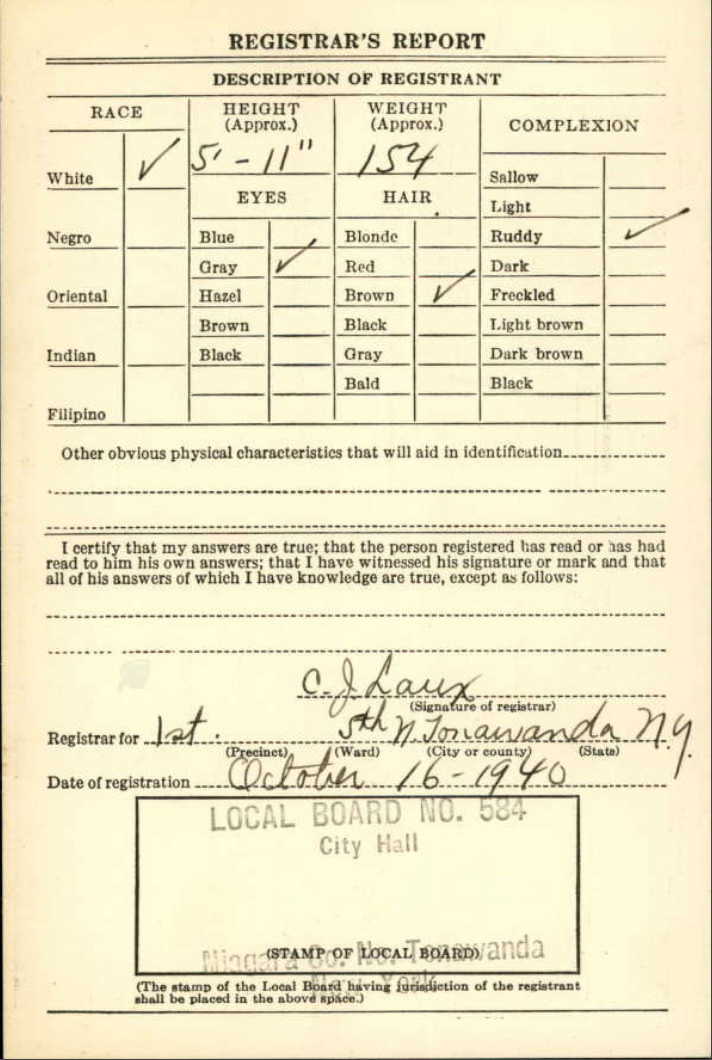 REGISTRAR'S REPORT
DESCRIPTION OF REGISTRANT
RACE HEIGHT (Approx.) WEIGHT (Approx.) COMPLEXION
White ✓ 5' - 11" 154
Sallow
EYES HAIR
Light
Negro Blue Blonde Ruddy ✓
Gray ✓ Red Dark
Oriental Hazel Brown ✓ Freckled
Brown Black Light brown
Indian Black Gray Dark brown
Bald Black
Filipino
Other obvious physical characteristics that will aid in identification
I certify that my answers are true; that the person registered has read or has had
read to him his own answers; that I have witnessed his signature or mark and that
all of his answers of which I have knowledge are true, except as follows:
C. J. Laux
(Signature of registrar)
Registrar for 1st. 5th N. Tonawanda N.Y.
(Precinct) (Ward) (City or county) (State)
Date of registration October 16 - 1940
LOCAL BOARD NO. 584
City Hall
Niagara Co. No. Tonawanda
(STAMP OF LOCAL BOARD)
New York
(The stamp of the Local Board having jurisdiction of the registrant
shall be placed in the above space.)